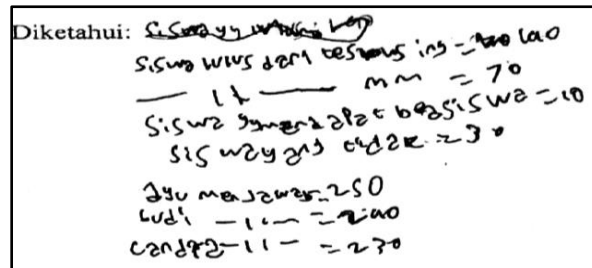 Diketahui:
siswa lulus dari tes bhs ing = 100
— 11 — mm = 70
siswa yg mendapat beasiswa = 10
siswa yang tidak = 30
Ayu menjawab = 250
budi — 11 — = 240
candra — 11 — = 230